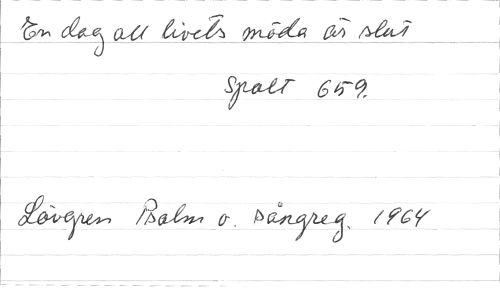 En dag all livets möda är slut
Spalt 659.
Lövgren Psalm o. sångreg. 1964